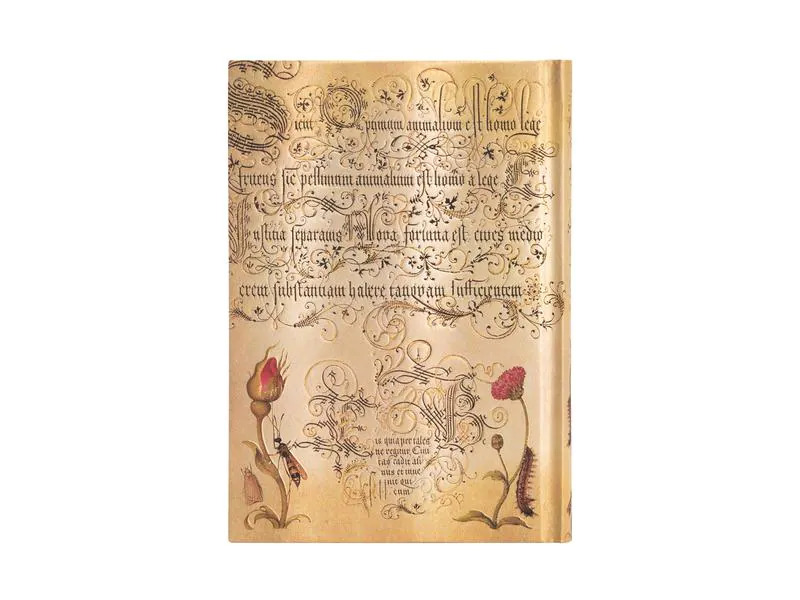 Sicut Optimum animalium est homo lege
fruens sic pessimum animalium est homo a lege Et
Iustitia separatus Nova fortuna est cives medio
crem substantiam habere tanquam sufficientem
is quia per tales
ne regitur Civi
tas cadit ali
nus et inve
nit qui
cum